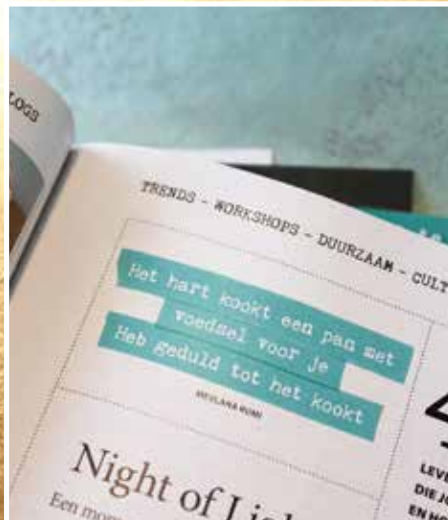 LOGS
TRENDS - WORKSHOPS - DUURZAAM - CULT
Het hart kookt een pan met
voedsel voor je
Heb geduld tot het kookt
MEVLANA RUMI
4
LEVE
DIE JO
EN HO
Night of Li
Een mom